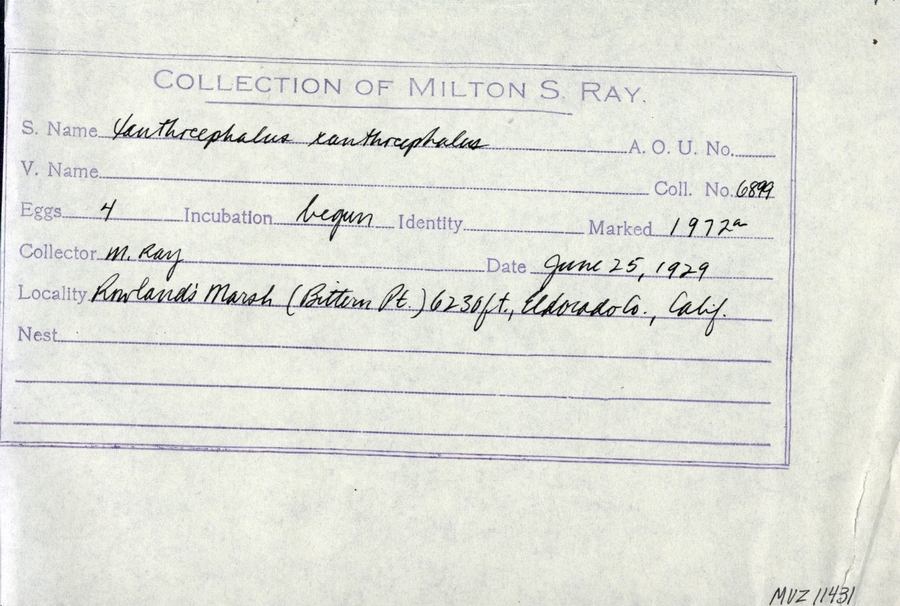 COLLECTION OF MILTON S. RAY.
S. Name Xanthocephalus xanthocephalus A. O. U. No.
V. Name Coll. No. 6899
Eggs 4 Incubation begun Identity Marked 1972a
Collector M. Ray Date June 25, 1929
Locality Rowland's Marsh (Bittern Pt.) 6230ft., Eldorado Co., Calif.
Nest
MVZ 11431